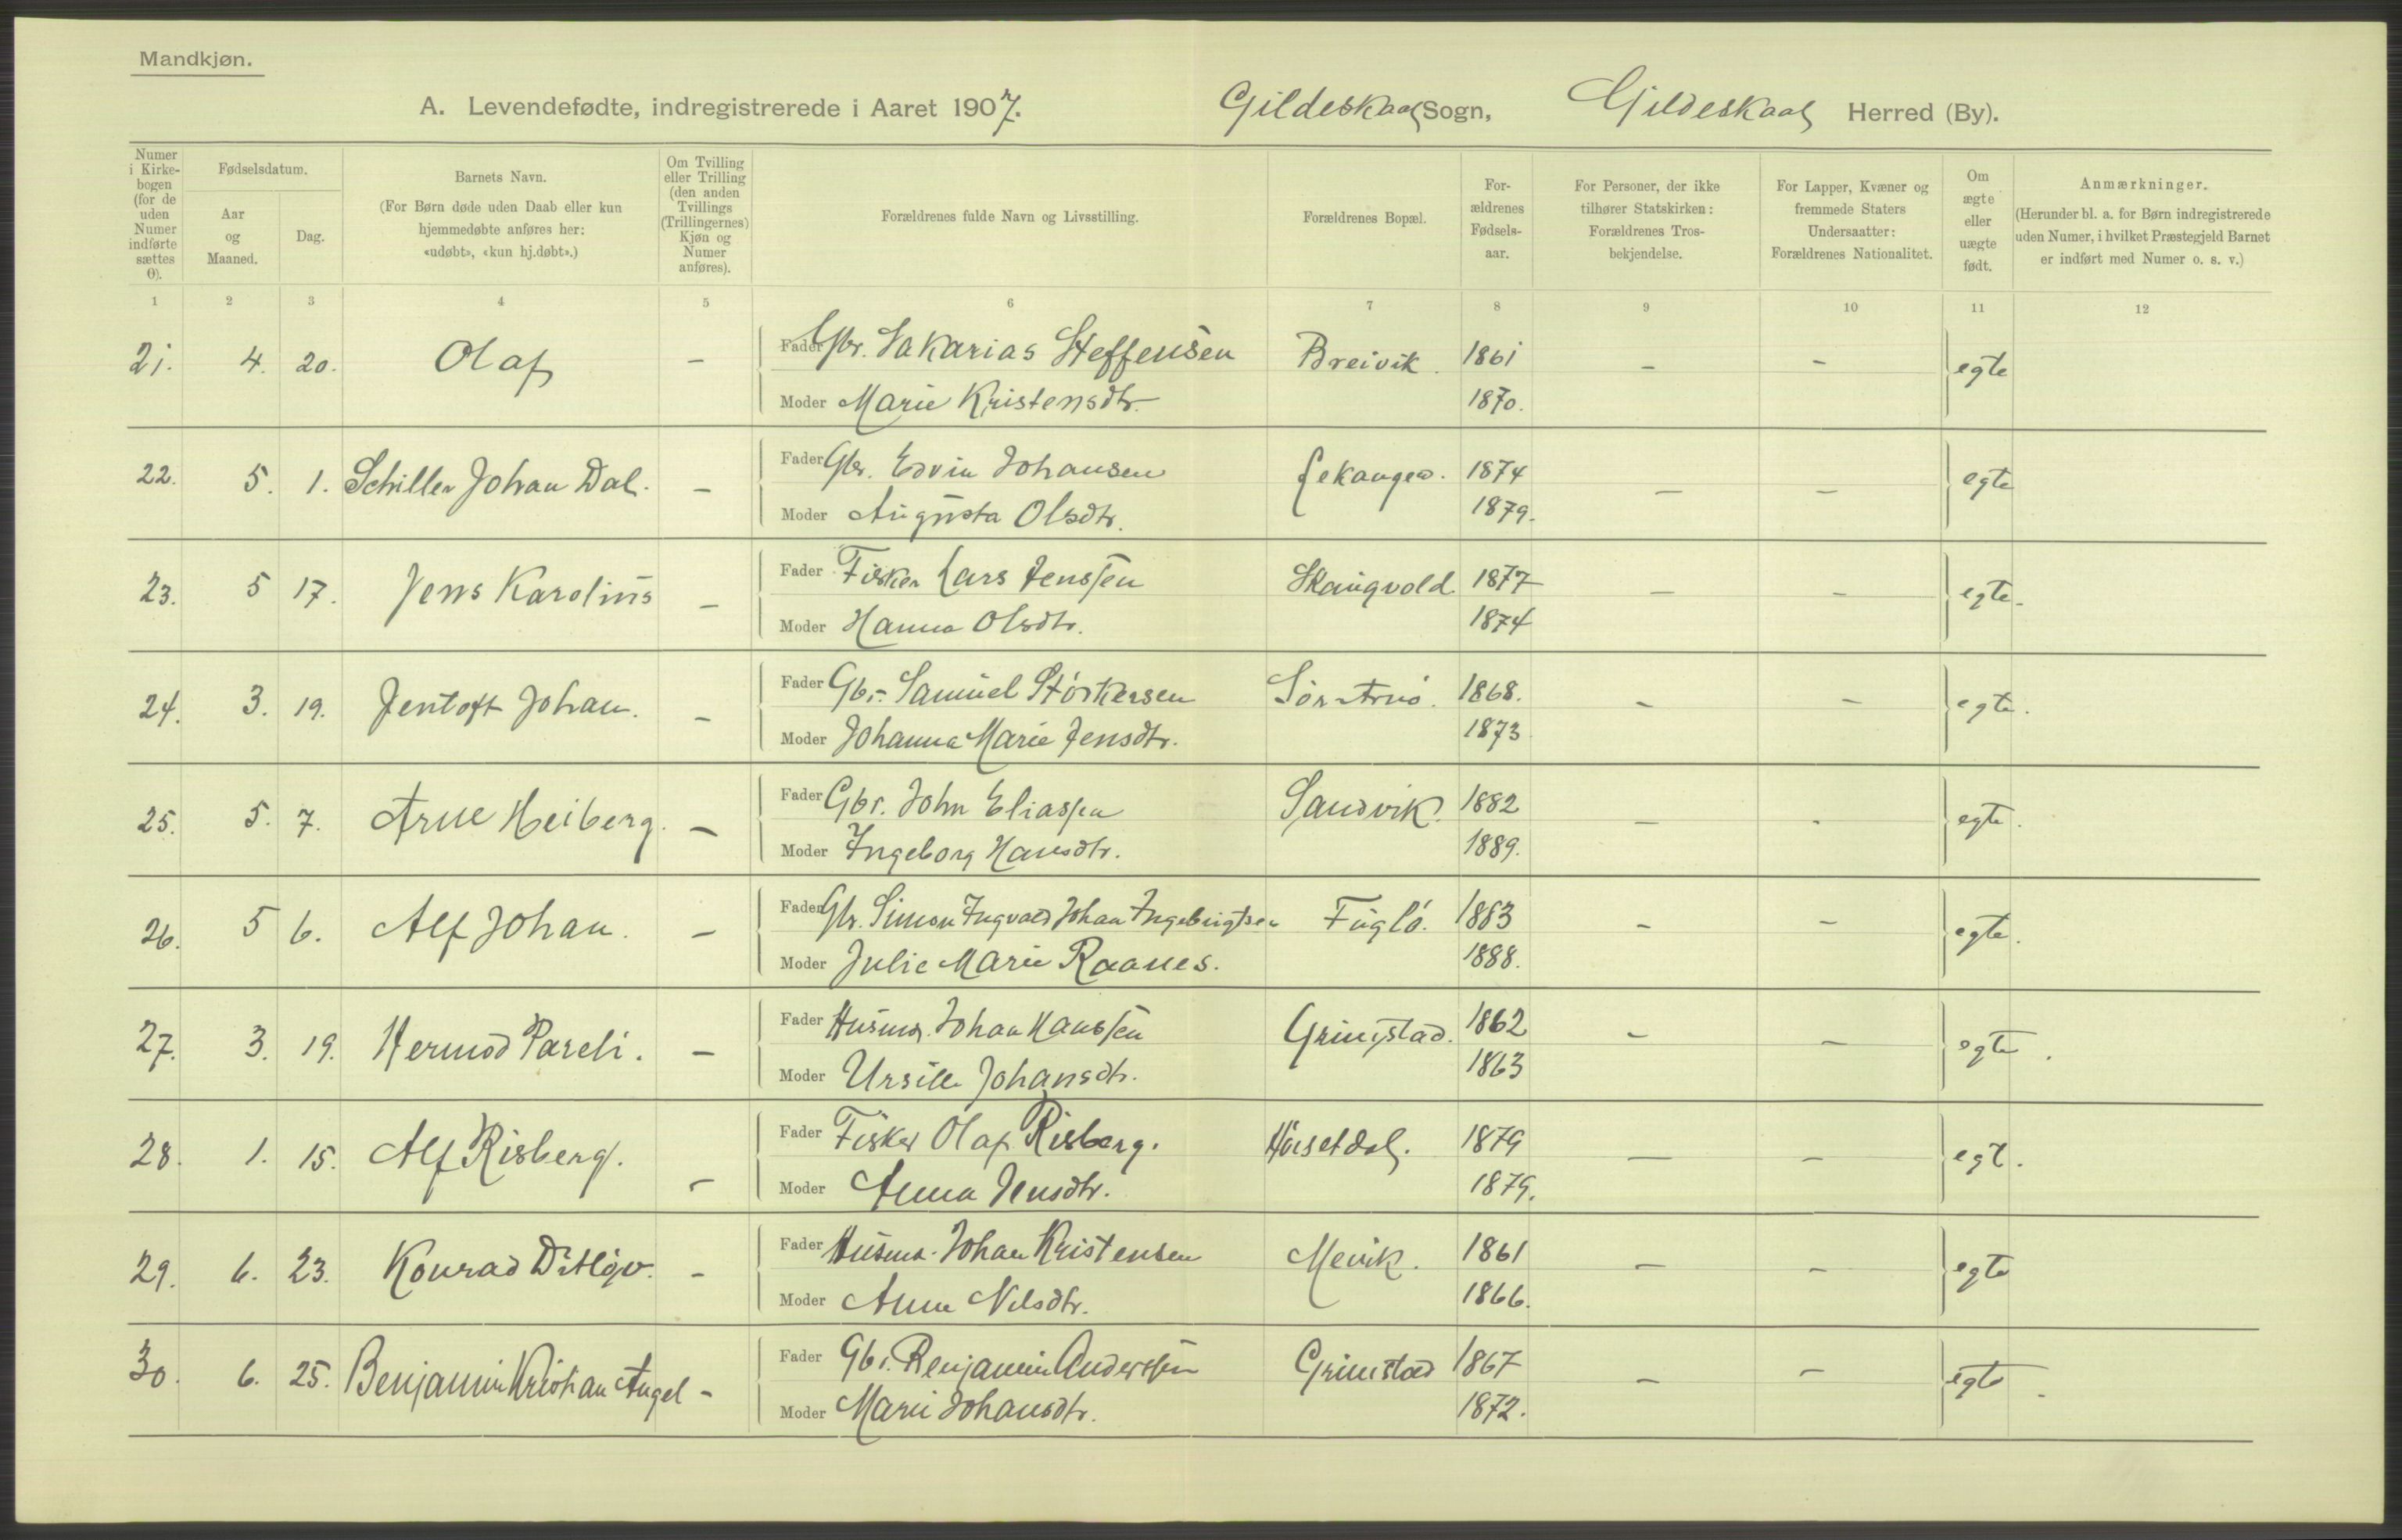 Mandkjøn.
A. Levendefødte, indregistrerede i Aaret 1907. Gildeskaal Sogn, Gildeskaal Herred (By).
Numer i Kirkebogen (for de uden Numer indførte sættes 0).
Fødselsdatum.
Aar og Maaned.
Dag.
Barnets Navn.
(For Børn døde uden Daab eller kun hjemmedøbte anføres her: «udøbt», «kun hj.døbt».)
Om Tvilling eller Trilling (den anden Tvillings (Trillingernes) Kjøn og Numer anføres).
Forældrenes fulde Navn og Livsstilling.
Forældrenes Bopæl.
Forældrenes Fødselsaar.
For Personer, der ikke tilhører Statskirken: Forældrenes Trosbekjendelse.
For Lapper, Kvæner og fremmede Staters Undersaatter: Forældrenes Nationalitet.
Om ægte eller uægte født.
Anmærkninger.
(Herunder bl. a. for Børn indregistrerede uden Numer, i hvilket Præstegjeld Barnet er indført med Numer o. s. v.)
1 2 3 4 5 6 7 8 9 10 11 12
21. 4. 20. Olaf – Fader Gbr. Sakarias Steffensen Breivik. 1861 – – egte
Moder Marie Kristensdtr. 1870.
22. 5. 1. Schiller Johan Dal. – Fader Gbr. Edvin Johansen Lekanger. 1874 – – egte
Moder Augusta Olsdtr. 1879.
23. 5 17. Jens Karolius – Fader Fisker Lars Jenssen Skaugvold 1877 – – egte.
Moder Hanna Olsdtr. 1874
24. 3. 19. Jentoft Johan. – Fader Gbr. Samuel Störkersen Sör Arnö. 1868. – – egte.
Moder Johanna Marie Jensdtr. 1873
25. 5. 7. Arne Heiberg. – Fader Gbr. John Eliassen Sandvik. 1882 – - egte.
Moder Ingeborg Hansdtr. 1889.
26. 5 6. Alf Johan. – Fader Gbr. Simon Ingvald Johan Ingebrigtsen Fuglö. 1883 – – egte.
Moder Julie Marie Raanes. 1888.
27. 3. 19. Hermod Pareli. – Fader Husmd. Johan Hanssen Grimstad. 1862 – – egte.
Moder Ursille Johansdtr. 1863
28. 1. 15. Alf Risberg. – Fader Fisker Olaf Risberg. Hörsetdal. 1879 – – egt.
Moder Anna Jensdtr. 1879.
29. 6. 23. Konrad Ditlev. – Fader Husmd. Johan Kristensen Mevik. 1861 – – egte
Moder Anne Nilsdtr. 1866.
30. 6. 25. Benjamin Kristian Angel – Fader Gbr. Benjamin Anderssen Grimstad 1867 – – egte
Moder Marie Johansdtr. 1872.